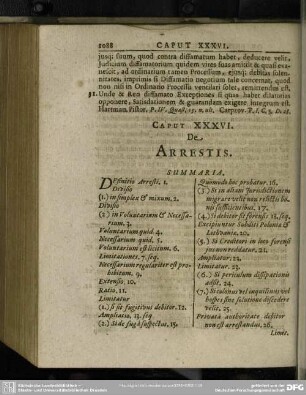 1088 CAPUT XXXVI.
jusq; suum, quod contra diffamatum habet, deducere velit,
Judicium diffamatorium quidem vires suas amisit & quasi eva-
nescit, ad ordinarium tamen Processum, ejusq; debitas solen-
nitates, imprimis si Diffamatio negotium tale concernat, quod
non nisi in Ordinario Processu ventilari solet, remittendus est.
31. Unde & Reo diffamato Exceptiones si quas habet dilatorias
opponere, Satisdationem & guarandam exigere integrum est.
Hartman. Pistor. P. IV. Carpzov. P. I. C.
CAPUT XXXVI.
De
ARRESTIS.
SUMMARIA.
Definitio Arresti, 1.
Divisio
(1.) in simplex & mixtum, 2.
Divisio
(2.) in Voluntarium & Necessa-
rium, 3.
Voluntarium quid, 4.
Necessarium quid, 5.
Voluntarium est licitum, 6.
Limitationes, 7. seq.
Necessarium regulariter est pro-
hibitum, 9.
Extensio 10.
Ratio, 11.
Limitatur
(1.) si sit fugitivus debitor, 12.
Ampliatio, 13. seq.
(2.) Si de fuga suspectus, 15.
Quomodo hoc probatur, 16.
(3.) Si in aliam Jurisdictionem
migrare velit nec relictis bo-
nis sufficientibus, 17.
(4.) Si debitor sit forensis 18. seq.
Excipiuntur Poloni &
20.
(5.) Si Creditori in loco forensi
21.
Ampliatur, 22.
Limitatur, 23.
(6.) Si periculum dissipationis
adsit, 24.
(7.) Si colonus vel inquilinus vel
hospes sine solutione discedere
velit, 25.
Privata authoritate debitor
non est arrestandus, 26.
Limit.